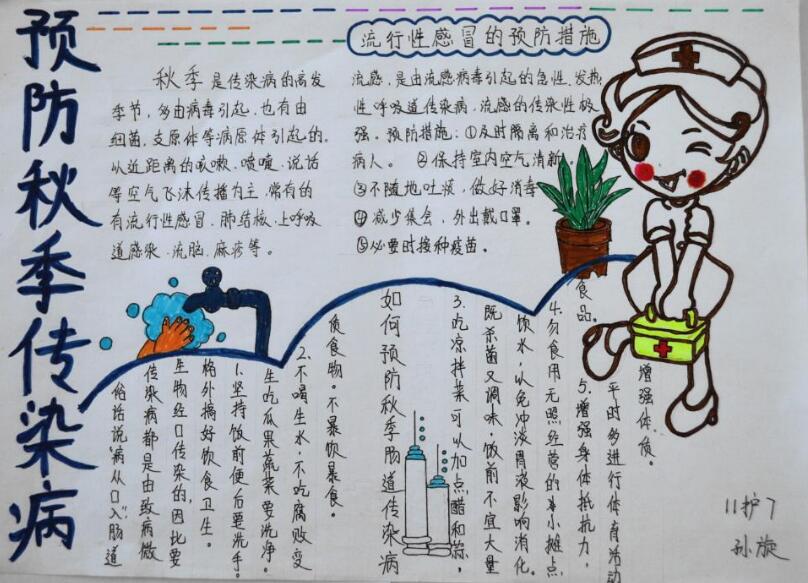 预防秋季传染病
流行性感冒的预防措施
秋季是传染病的高发
季节，多由病毒引起，也有由
细菌，支原体等病原体引起的。
以近距离的咳嗽、喷嚏、说话
等空气飞沫传播为主，常有的
有流行性感冒、肺结核、上呼吸
道感染、流脑、麻疹等。
流感，是由流感病毒引起的急性、发热
性呼吸道传染病，流感的传染性极
强。预防措施：①及时隔离和治疗
病人。②保持室内空气清新。
③不随地吐痰，做好消毒
④减少集会，外出戴口罩。
⑤必要时接种疫苗。
如何预防秋季肠道传染病
俗话说"病从口入"，肠道
传染病都是由致病微
生物经口传染的，因此要
格外搞好饮食卫生。
1.坚持饭前便后要洗手。
生吃瓜果蔬菜要洗净。
2.不喝生水，不吃腐败变
质食物。不暴饮暴食。
3.吃凉拌菜可以加点醋和蒜，
既杀菌又调味，饭前不宜大量
饮水，以免冲淡胃液影响消化。
4.勿食用无照经营的小摊点
食品。
5.增强身体抵抗力，
平时多进行体育活动
增强体质。
11护7
孙旋